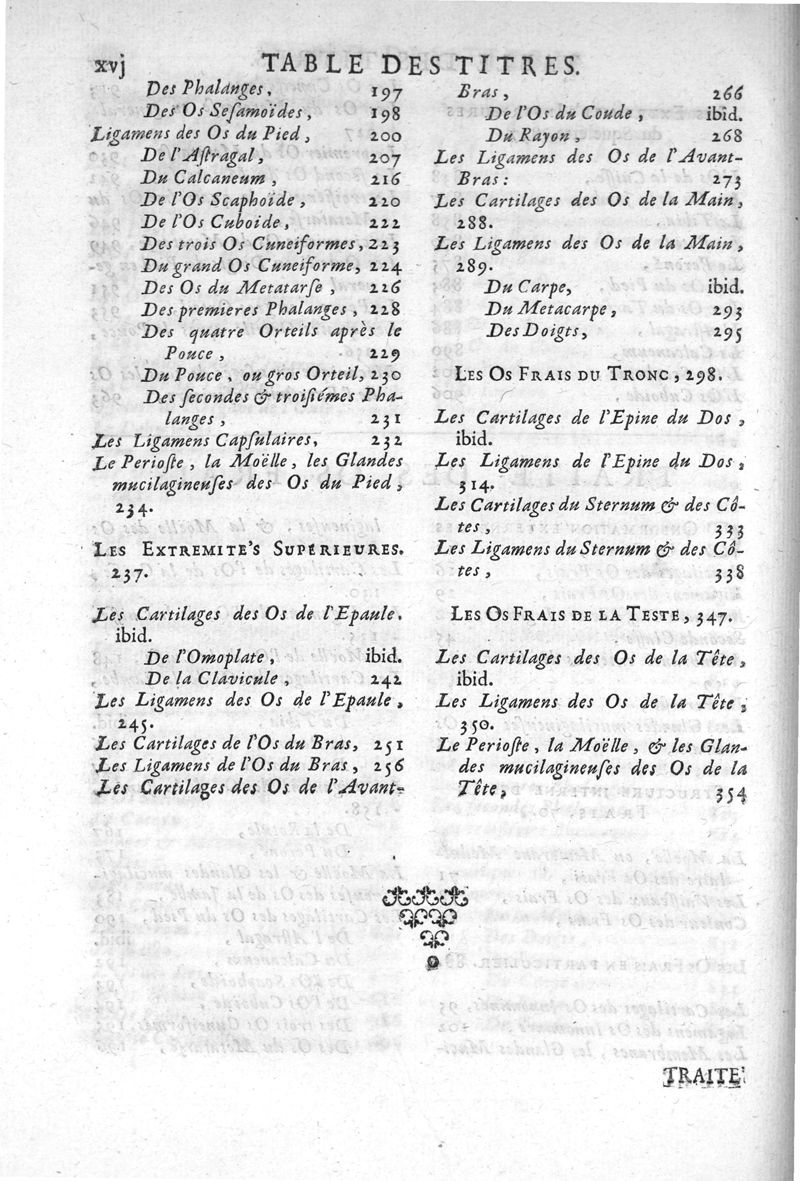 xvj TABLE DES TITRES.
Des Phalanges, 197
Des Os Seſamoïdes, 198
Ligamens des Os du Pied, 200
De l'Aſtragal, 207
Du Calcaneum, 216
De l'Os Scaphoïde, 220
De l'Os Cuboide, 222
Des trois Os Cuneiformes, 223
Du grand Os Cuneiforme, 224
Des Os du Metatarſe, 226
Des premieres Phalanges, 228
Des quatre Orteils après le
Pouce, 229
Du Pouce, ou gros Orteil, 230
Des ſecondes & troiſiémes Pha-
langes, 231
Les Ligamens Capſulaires, 232
Le Perioſte, la Moëlle, les Glandes
mucilagineuſes des Os du Pied,
234.
LES EXTREMITE'S SUPÉRIEURES.
237.
Les Cartilages des Os de l'Epaule.
ibid.
De l'Omoplate, ibid.
De la Clavicule, 242
Les Ligamens des Os de l'Epaule,
245.
Les Cartilages de l'Os du Bras, 251
Les Ligamens de l'Os du Bras, 256
Les Cartilages des Os de l'Avant-
Bras, 266
De l'Os du Coude, ibid.
Du Rayon, 268
Les Ligamens des Os de l'Avant-
Bras: 273
Les Cartilages des Os de la Main,
288.
Les Ligamens des Os de la Main,
289.
Du Carpe, ibid.
Du Metacarpe, 293
Des Doigts, 295
LES OS FRAIS DU TRONC, 298.
Les Cartilages de l'Epine du Dos,
ibid.
Les Ligamens de l'Epine du Dos,
314.
Les Cartilages du Sternum & des Cô-
tes, 333
Les Ligamens du Sternum & des Cô-
tes, 338
LES OS FRAIS DE LA TESTE, 347.
Les Cartilages des Os de la Tête,
ibid.
Les Ligamens des Os de la Tête,
350.
Le Perioſte, la Moëlle, & les Glan-
des mucilagineuſes des Os de la
Tête, 354
TRAITE'